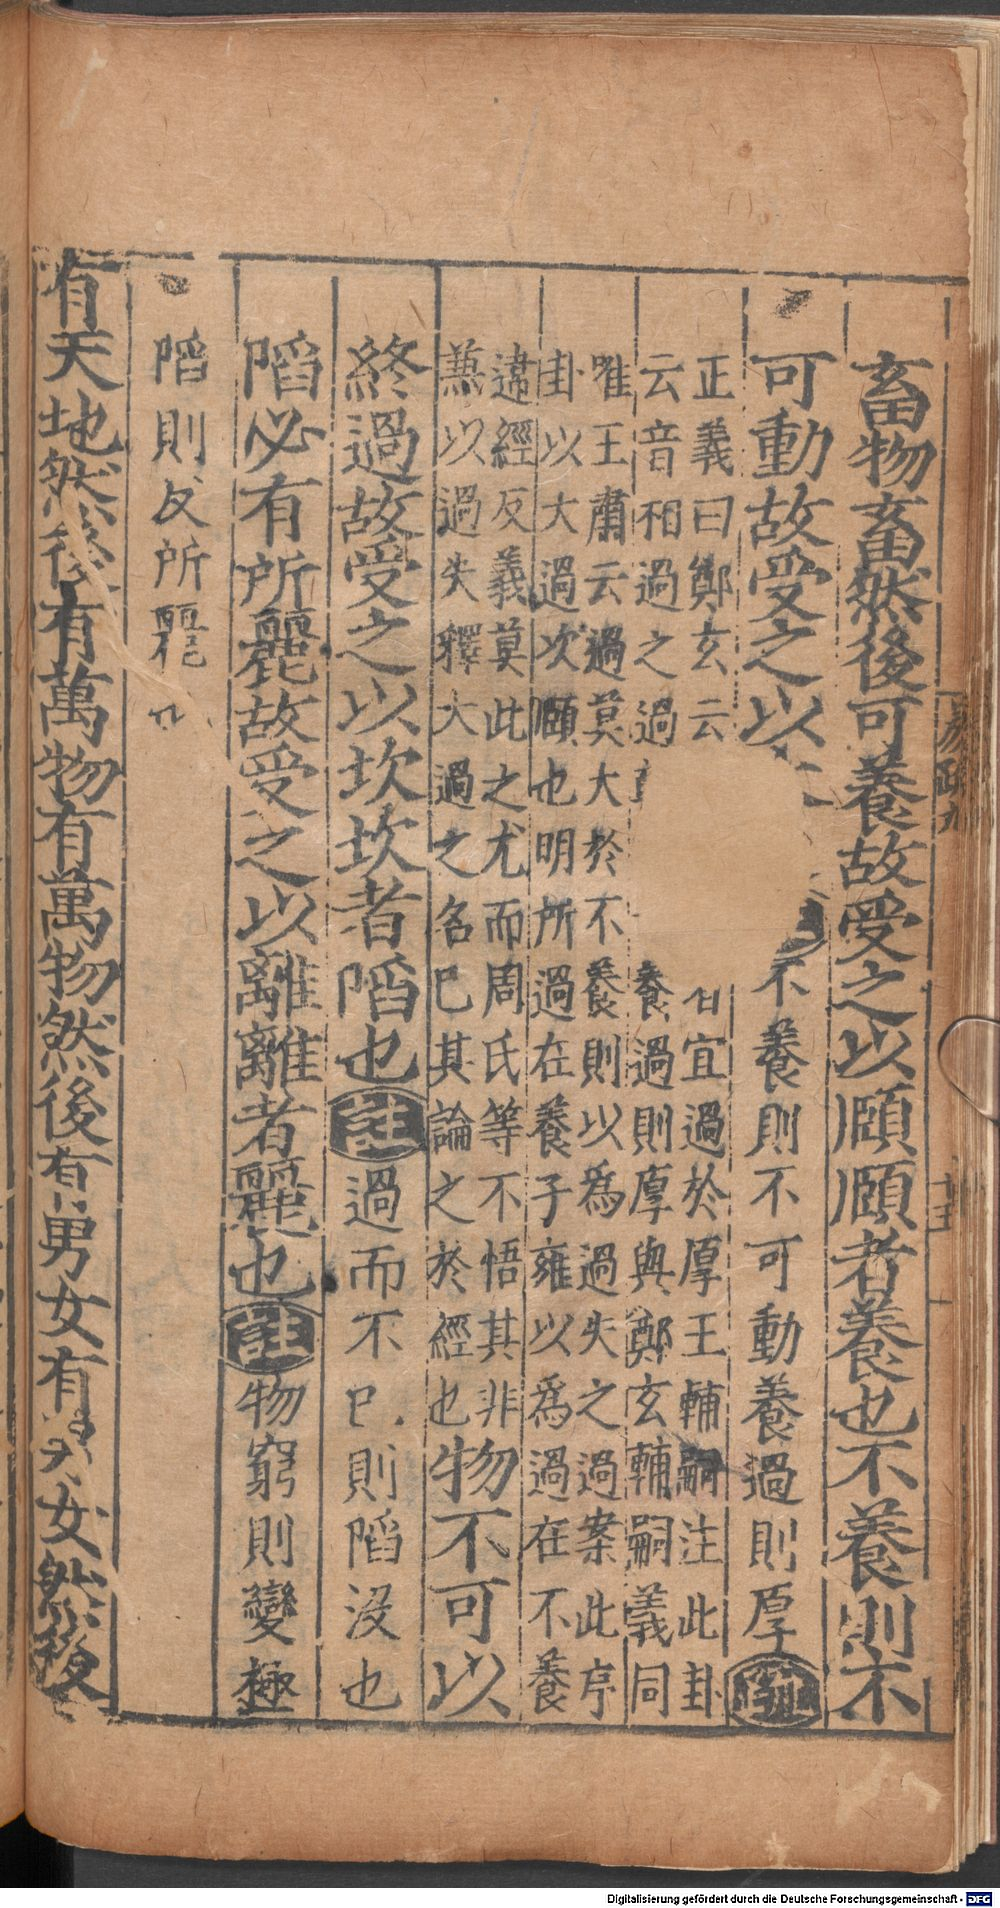 畜物畜然後可養故受之以頤頤者養也不養則不
可動故受之以不養則不可動養過則厚疏
正義曰鄭玄云宜過於厚王輔嗣注此卦
云音相過之過養過則厚與鄭玄輔嗣義同
唯王肅云過莫大於不養則以爲過失之過案此序
卦以大過次頤也明所過在養子雍以爲過在不養
違經反義莫此之尤而周氏等不悟其非
兼以過失釋大過之名巳其論之於經也
物不可以
終過故受之以坎坎者陷也註過而不巳則陷沒也
陷必有所麗故受之以離離者麗也註物窮則變極
陷則反所麗
有天地然後有萬物有萬物然後有男女有女然後
易疏九
Digitalisierung gefördert durch die Deutsche Forschungsgemeinschaft - DFG